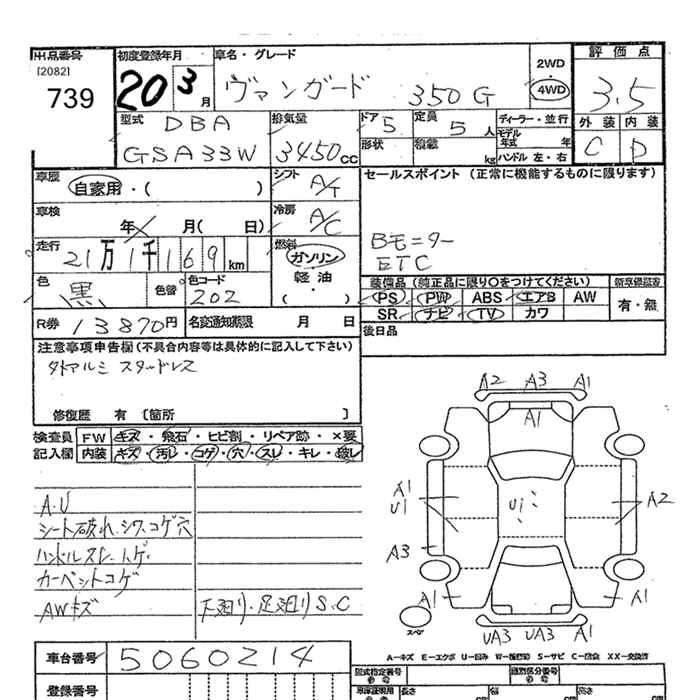 出品番号 初度登録年月 車名・グレード 2WD 評価点
[2082]
739 20 3月 ヴァンガード 350G 4WD 3.5
型式 DBA 排気量 ドア 5 定員 5人 ディーラー・並行 外装 内装
GSA33W 3450cc 形状 積載 kg モデル年式 年 C D
ハンドル 左・右
車歴 自家用・( ) シフト A/T セールスポイント (正常に機能するものに限ります)
車検 年 月( 日) 冷房 A/C
走行 21万1千169km 燃料 ガソリン 軽油 ・( ) Bモニター
ETC
色 黒 色替 色コード 202 装備品 (純正品に限り○をつけてください) 新車保証書
PS PW ABS エアB AW 有・無
R券 13870円 名変通知期限 月 日 SR ナビ TV カワ
後日品
注意事項申告欄 (不具合内容等は具体的に記入して下さい)
外アルミ スタッドレス
修復歴 有 〔箇所 〕
検査員 FW キズ・飛石・ヒビ割・リペア跡・×要
記入欄 内装 キズ・汚レ・コゲ・穴・スレ・キレ・破レ
A2 A3 A1
A1
A1 U1 Ui A2
A3
A1 A1
スペア UA3 UA3 A1
A.U
シート破れ シワ.コゲ穴
ハンドルスレ
カーペットコゲ
AWキズ 下廻り・足廻りS.C
A-キズ E-エクボ U-凹み W-補修跡 S-サビ C-腐蝕 XX-交換済
車台番号 5060214 型式指定番号 類別区分番号
登録番号 長さ cm 幅 cm 高さ cm